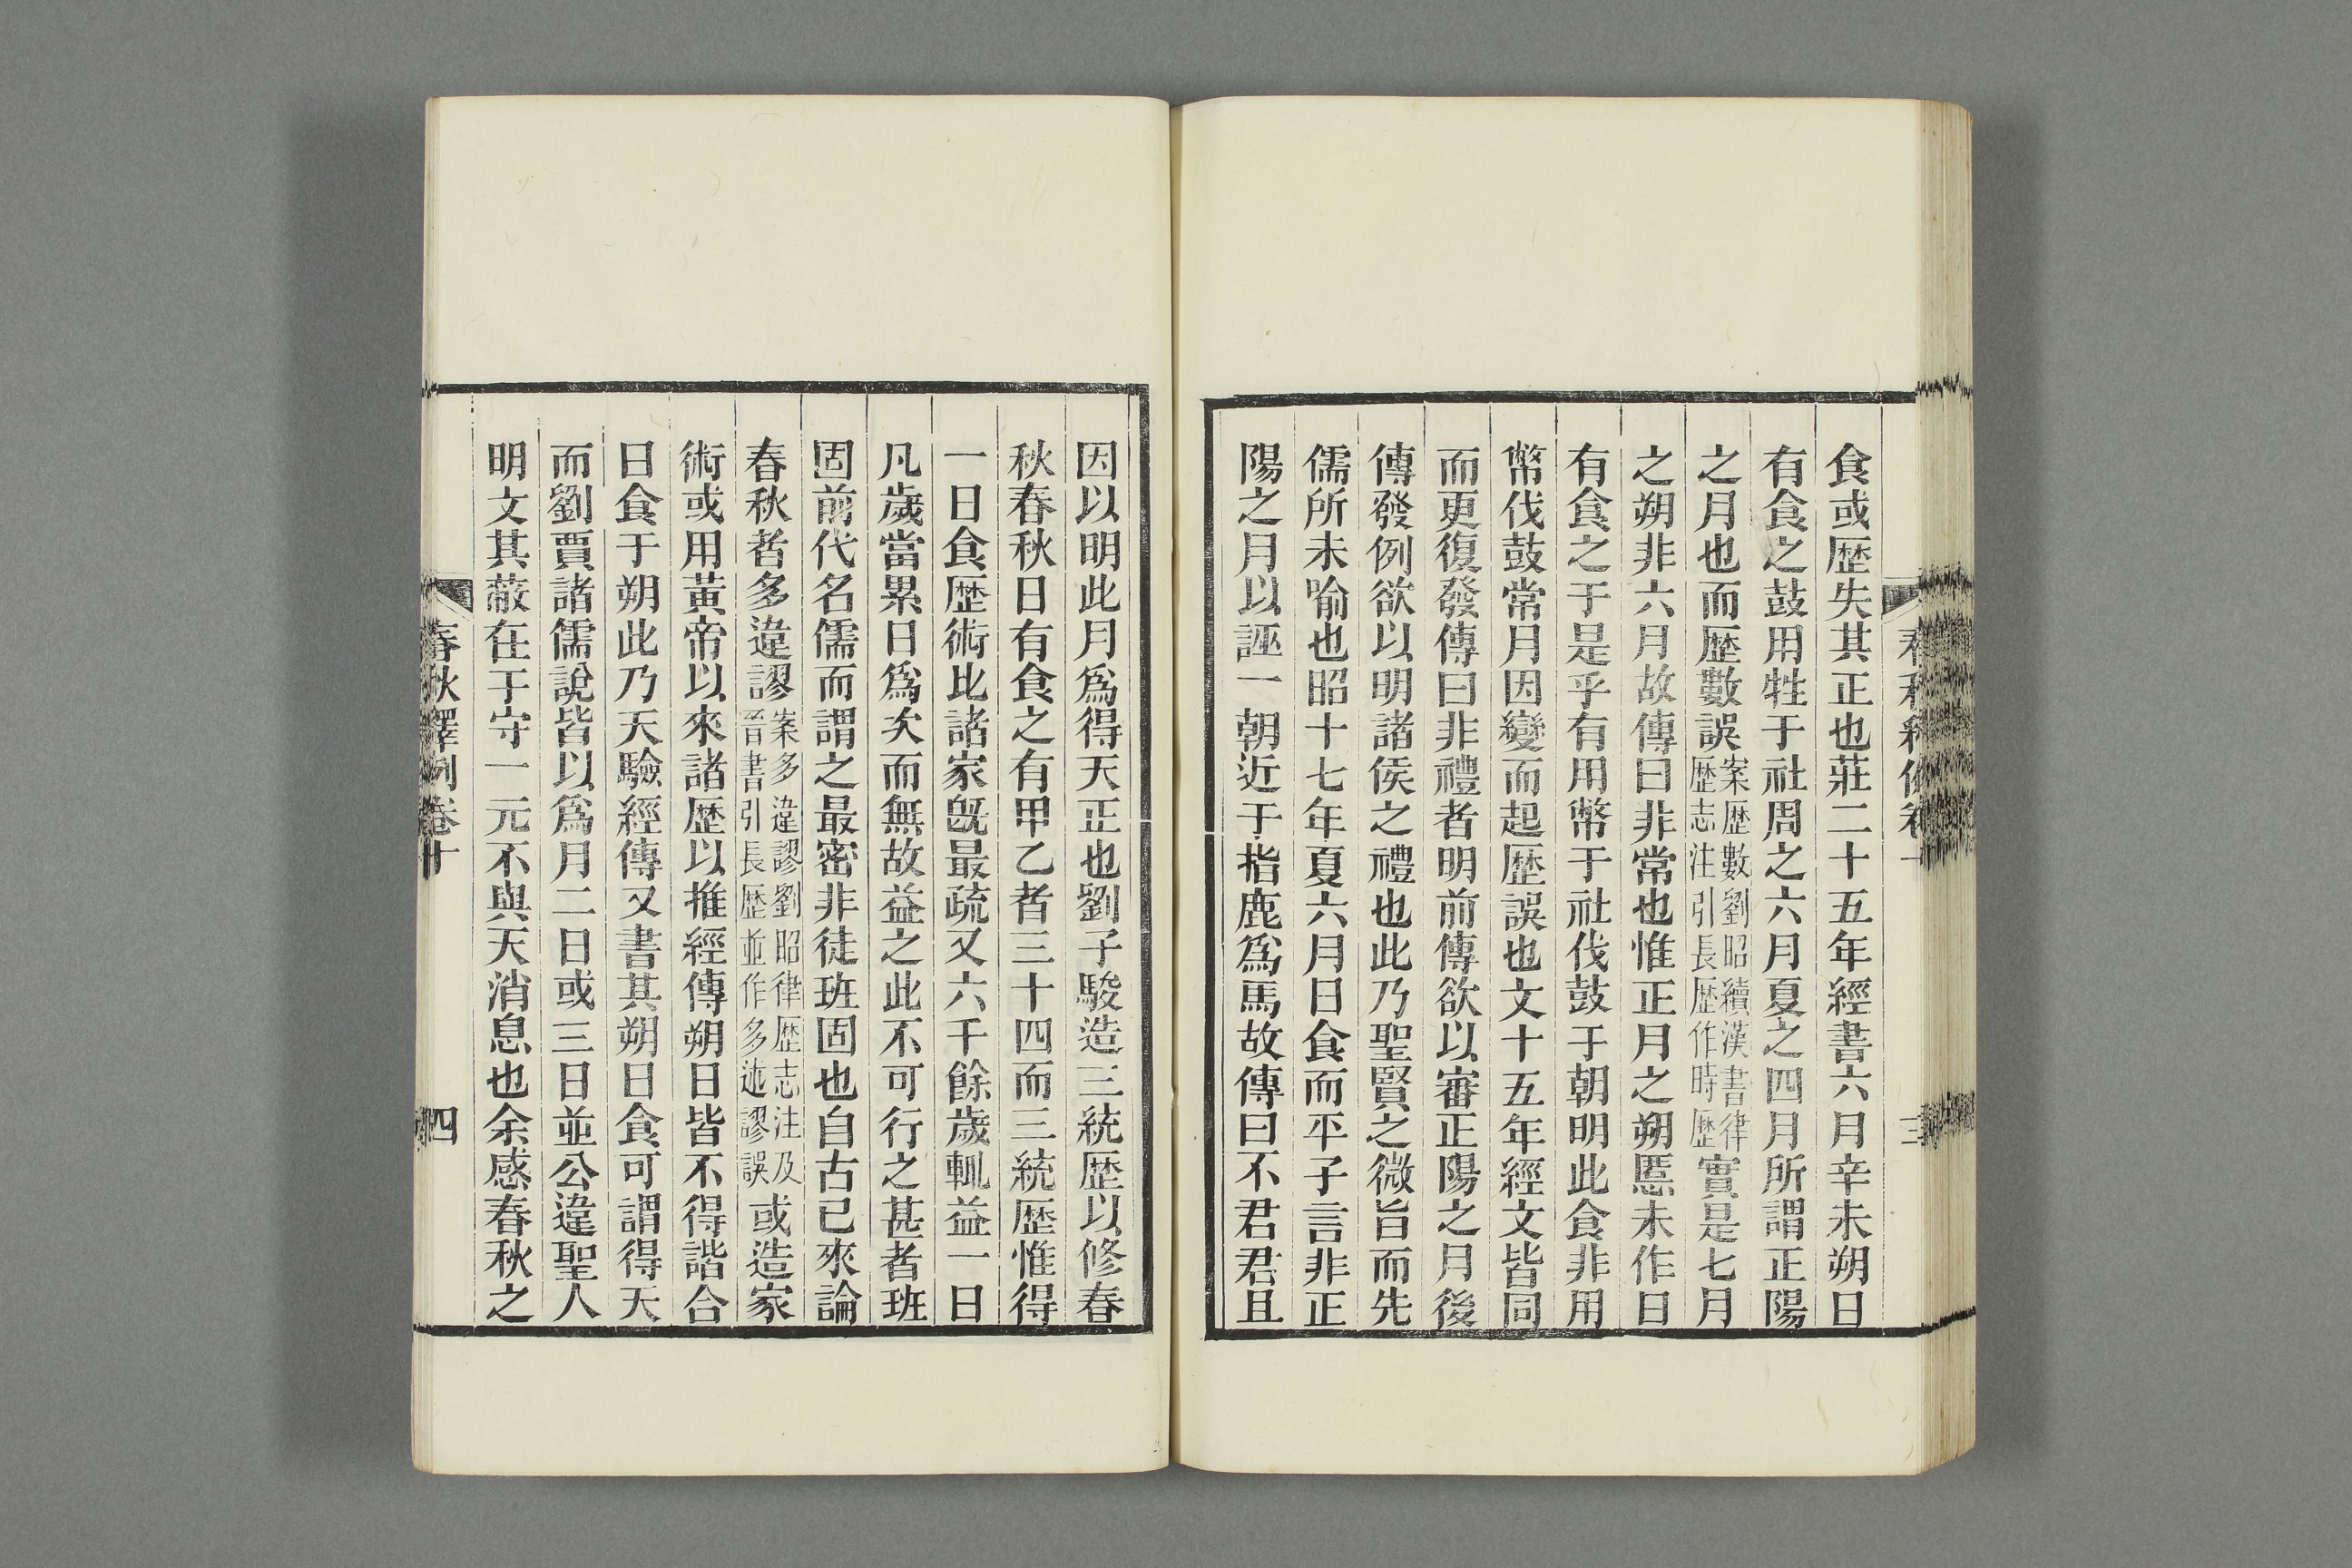 食或歴失其正也莊二十五年經書六月辛未朔日
有食之鼓用牲于社周之六月夏之四月所謂正陽
之月也而歴數誤案歴數劉昭續漢書律歴志注引長歴作時歴實是七月
之朔非六月故傳曰非常也惟正月之朔慝未作日
有食之于是乎有用幣于社伐鼓于朝明此食非用
幣伐鼓常月因變而起歴誤也文十五年經文皆同
而更復發傳曰非禮者明前傳欲以審正陽之月後
傳發例欲以明諸侯之禮也此乃聖賢之微旨而先
儒所未喻也昭十七年夏六月日食而平子言非正
陽之月以誣一朝近于指鹿爲馬故傳曰不君君且
因以明此月爲得天正也劉子駿造三統歴以修春
秋春秋日有食之有甲乙者三十四而三統歴惟得
一日食歴術比諸家旣最疏又六千餘歲輒益一日
凡歲當累日爲次而無故益之此不可行之甚者班
固前代名儒而謂之最密非徒班固也自古已來論
春秋者多違謬案多違謬劉昭律歴志注及晉書引長歴並作多述謬誤或造家
術或用黃帝以來諸歴以推經傳朔日皆不得諧合
日食于朔此乃天驗經傳又書其朔日食可謂得天
而劉賈諸儒說皆以爲月二日或三日並公違聖人
明文其蔽在于守一元不與天消息也余感春秋之
春秋釋例卷十
四